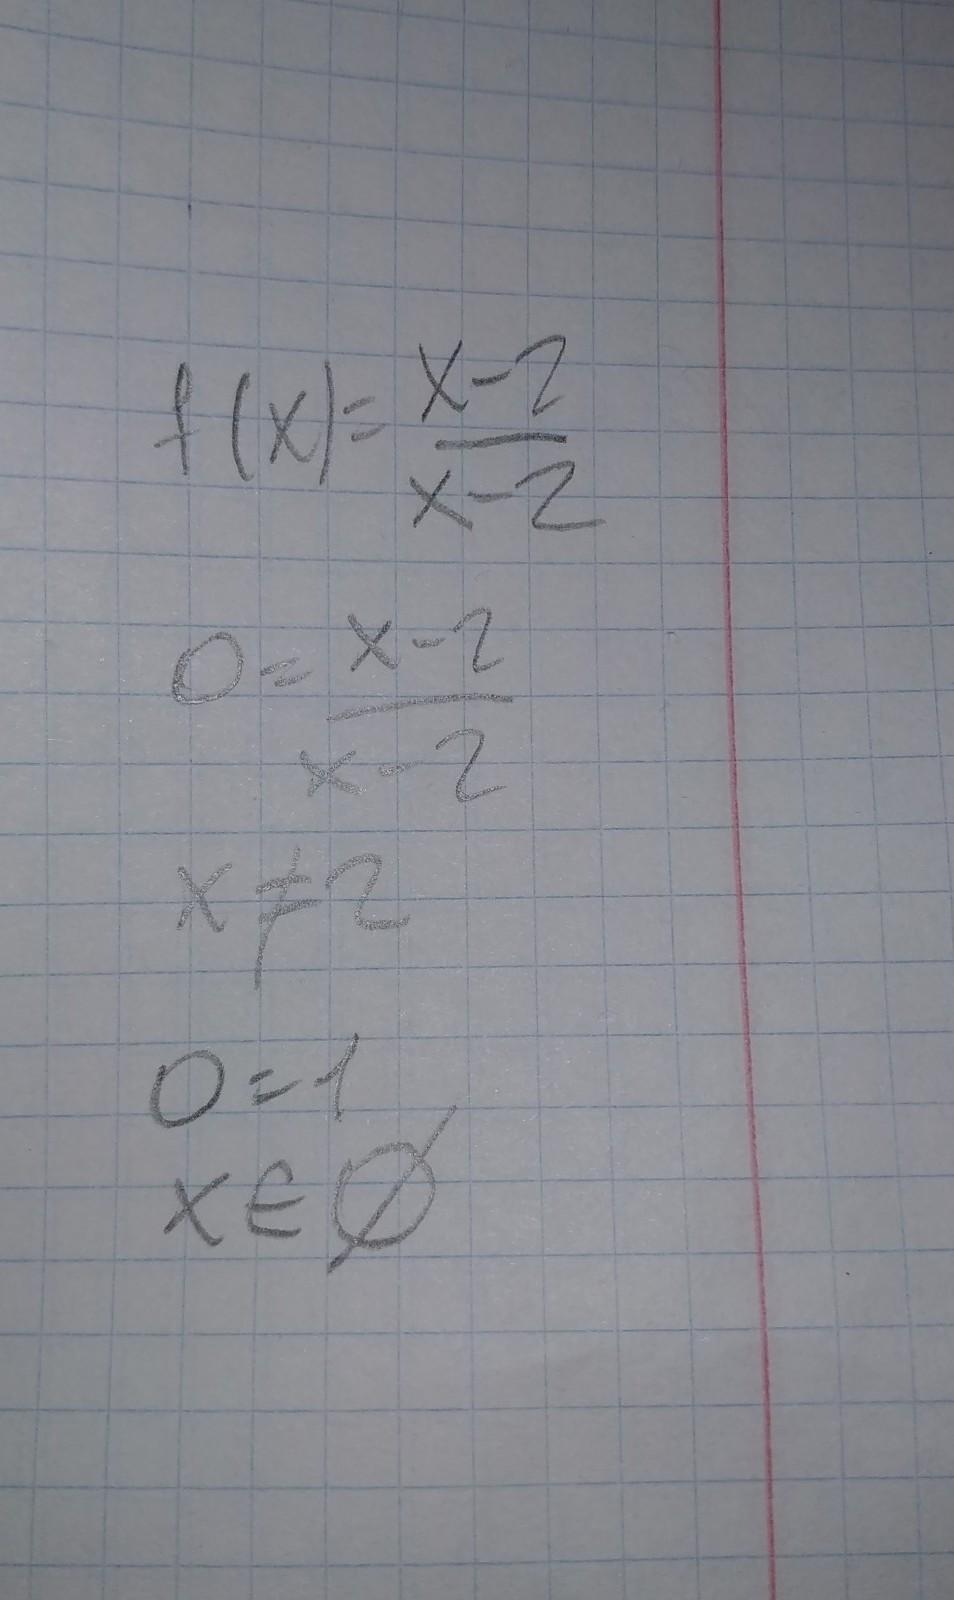 f(x)=\frac{x-2}{x-2}
0=\frac{x-2}{x-2}
x≠2
0=1
x∈∅